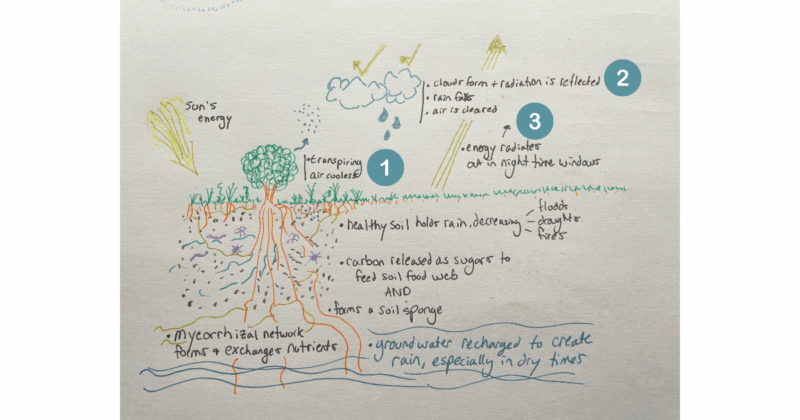 Sun's
energy
• clouds form + radiation is reflected
• rain falls
• air is cleared
2
3
• energy radiates
out in night time windows
• transpiring
air cooler
1
• healthy soil holds rain, decreasing
floods
droughts
fires
• carbon released as sugars to
feed soil food web
AND
• forms a soil sponge
• mycorrhizal network
forms + exchanges nutrients
• groundwater recharged to create
rain, especially in dry times